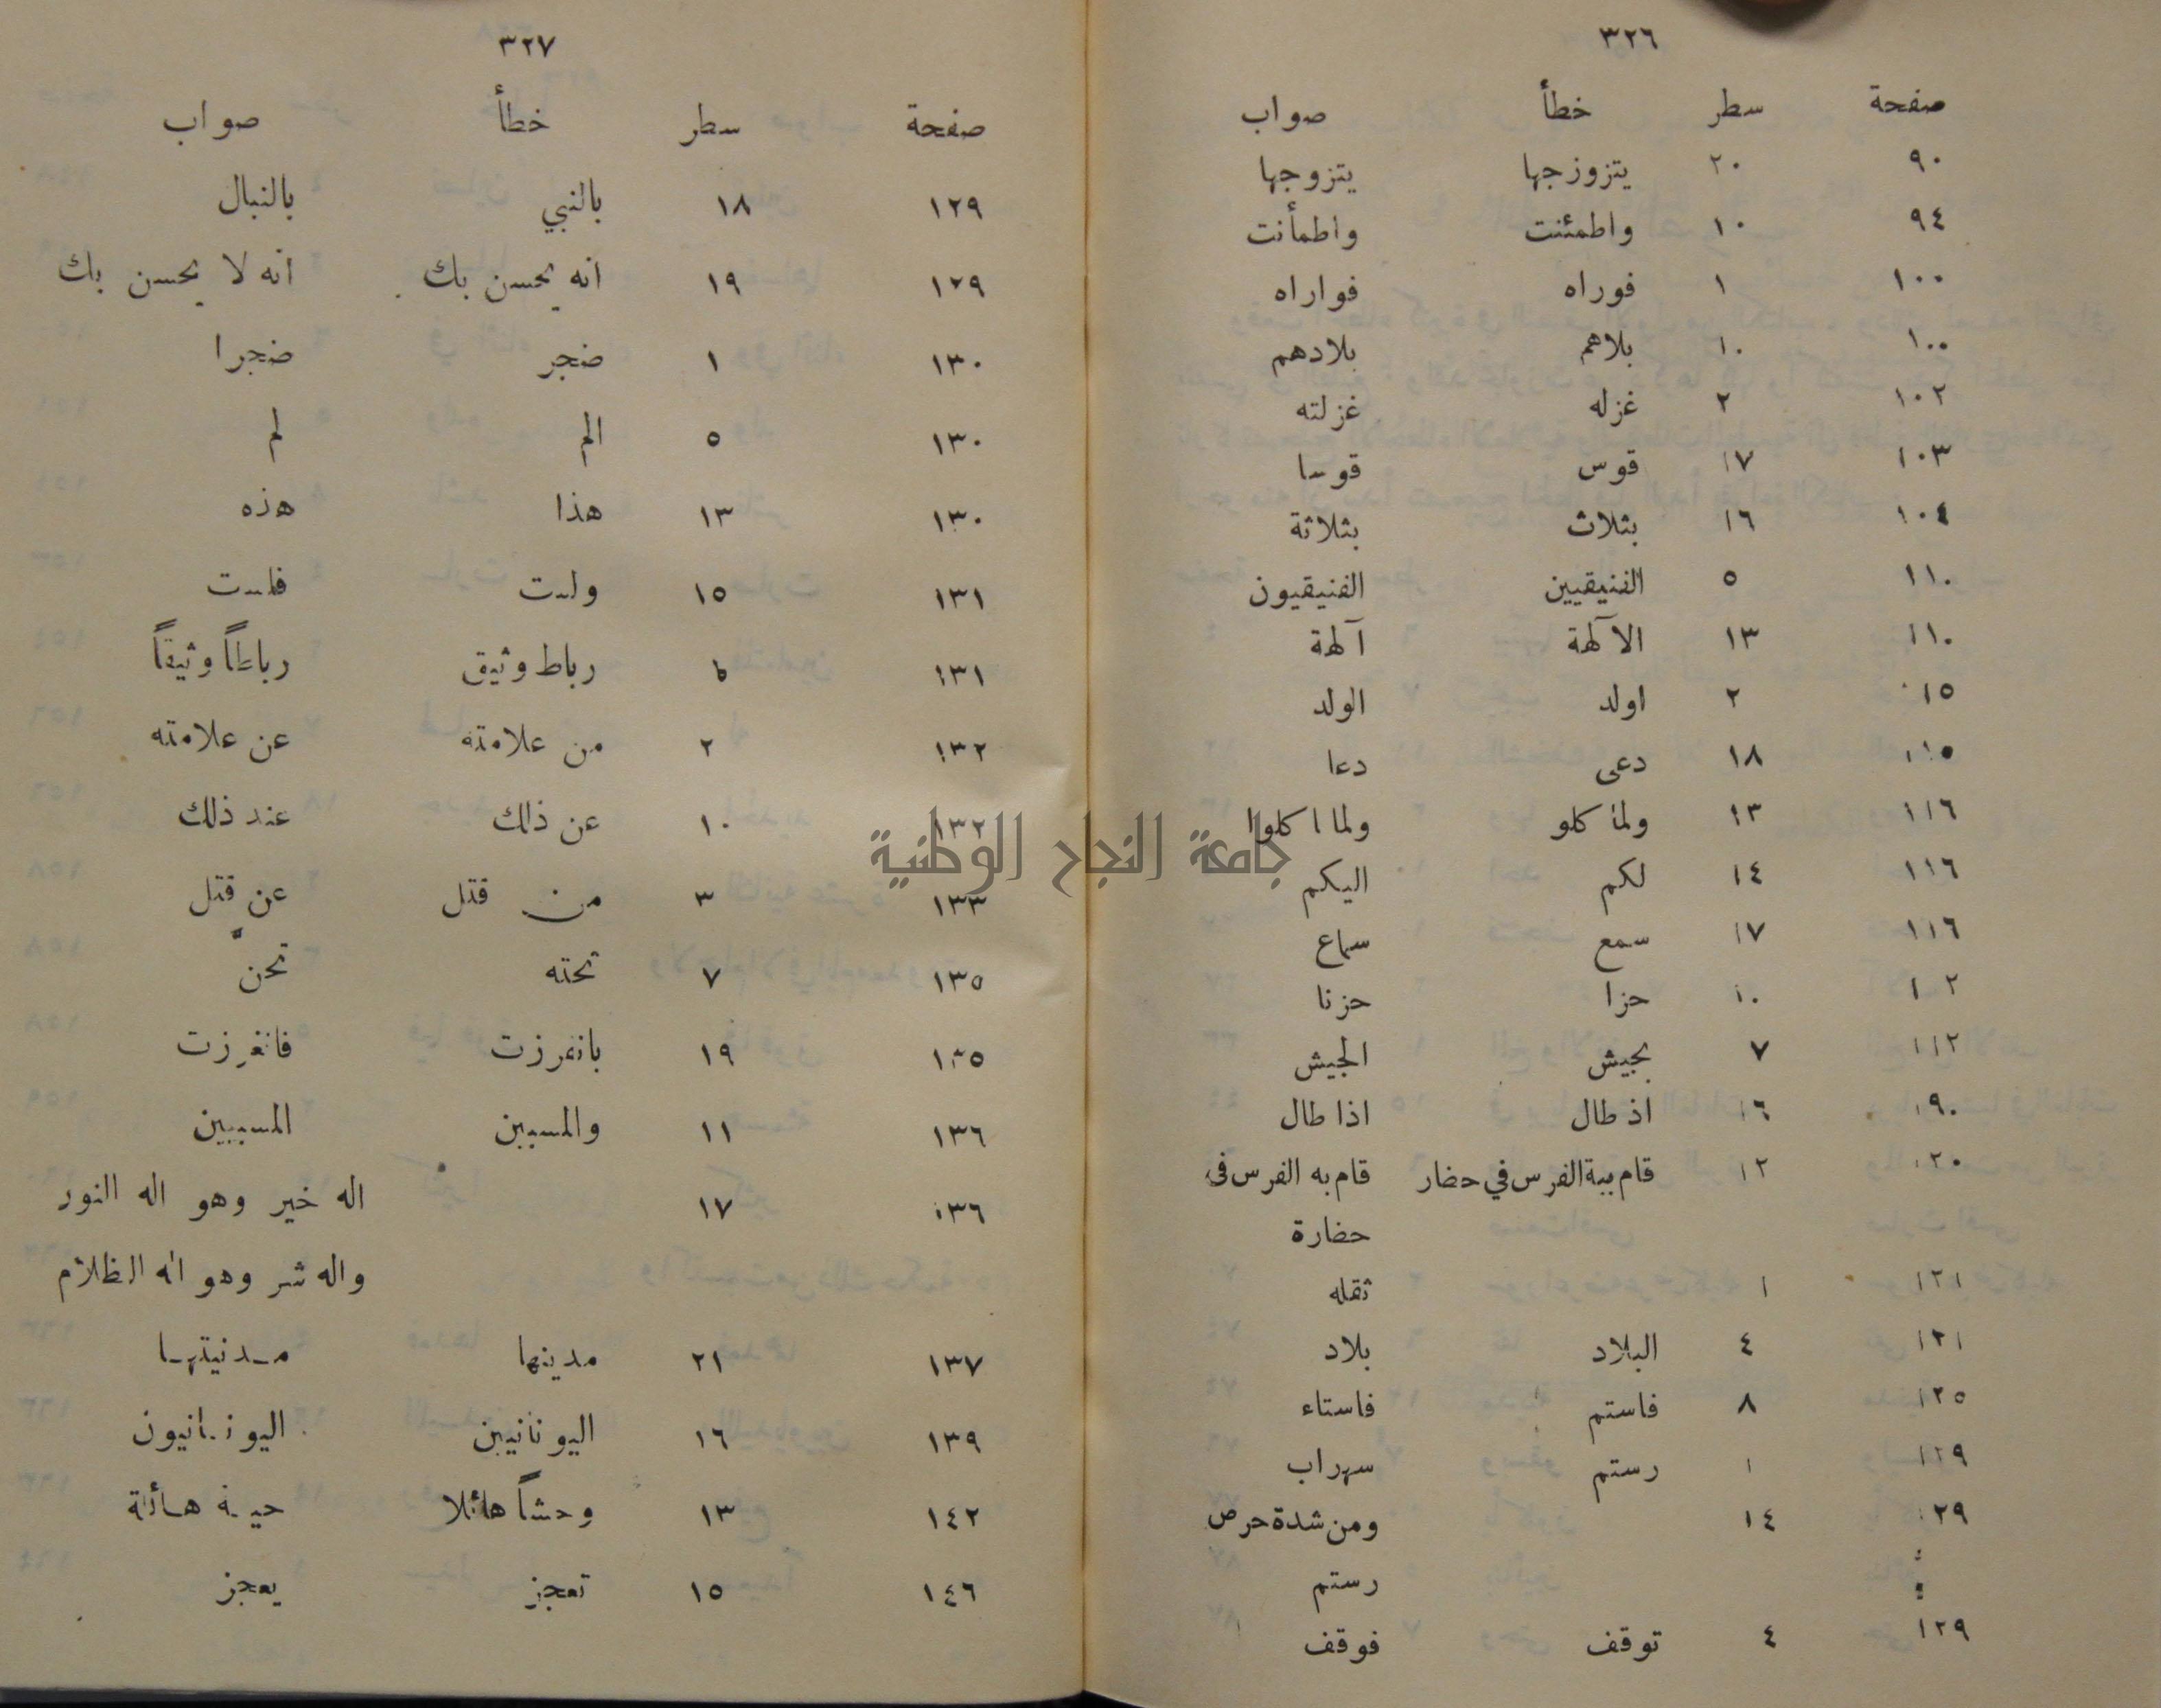 ٣٢٦
صفحة سطر خطأ صواب
٩٠ ٢٠ يتزوزجها يتزوجها
٩٤ ١٠ واطمئنت واطمأنت
١٠٠ ١ فوراه فواراه
١٠٠ ١٠ بلاهم بلادهم
١٠٢ ٢ غزله غزلته
١٠٣ ١٧ قوس قوسا
١٠٤ ١٦ بثلاث بثلاثة
١١٠ ٥ الفنيقيين الفنيقيون
١١٠ ١٣ الآلهة آلهة
١٥ ٢ اولد الولد
١١٥ ١٨ دعى دعا
١١٦ ١٣ ولمأ كلو ولما اكلوا
١١٦ ١٤ لكم اليكم
١١٦ ١٧ سمع سماع
١٠ حزا حزنا
١١٢ ٧ بجيش الجيش
١٦ اذ طال اذا طال
١٢٠ ١٢ قام بببة الفرس في حضار قام به الفرس في
حضارة
١٢١ ١ ثقله
١٢١ ٤ البلاد بلاد
١٢٥ ٨ فاستم فاستاء
١٢٩ ١ رستم سهراب
١٢٩ ١٤ ومن شدة حرص
رستم
١٢٩ ٤ توقف فوقف
٣٢٧
صفحة سطر خطأ صواب
١٢٩ ١٨ بالنبي بالنبال
١٢٩ ١٩ انه يحسن بك انه لا يحسن بك
١٣٠ ١ ضجر ضجرا
١٣٠ ٥ الم لم
١٣٠ ١٣ هذا هذه
١٣١ ١٥ ولست فلست
١٣١ رباط وثيق رباطاً وثيقاً
١٣٢ ٢ من علامته عن علامته
١٣٢ ١٠ عن ذلك عند ذلك
١٣٣ ٣ من قتل عن قتل
١٣٥ ٧ تحته تحن
١٣٥ ١٩ بانغرزت فانغرزت
١٣٦ ١١ والمسببن المسببين
١٣٦ ١٧ اله خير وهو اله النور
واله شر وهو اله الظلام
١٣٧ ٢١ مدينها مدنيتها
١٣٩ ١٦ اليونانيين اليونانيون
١٤٢ ١٣ وحشاً هائلا حية هائلة
١٤٦ ١٥ تعجز يعجز
جامعة النجاح الوطنية